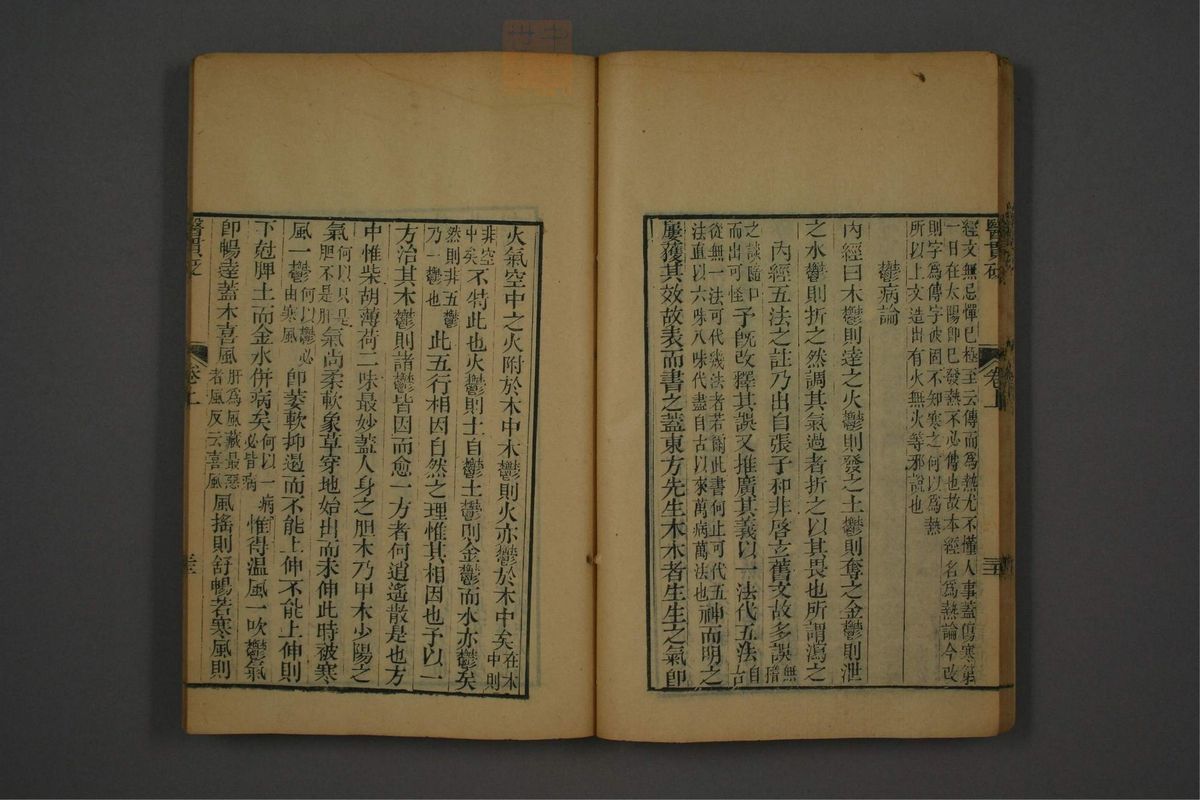 醫貫砭
卷上
三五
經文無忌憚已極至云傳而爲熱尤不懂人事蓋傷寒第
一日在太陽卽已發熱不必傳也故本經名爲熱論今改
則字爲傳字彼固不知寒之何以爲熱
所以上文造出有火無火等邪說也
鬱病論
內經曰木鬱則達之火鬱則發之土鬱則奪之金鬱則泄
之水鬱則折之然調其氣過者折之以其畏也所謂瀉之
內經五法之註乃出自張子和非啓玄舊文故多誤無稽
之談隨口而出可怪予旣改釋其誤又推廣其義以一法代五法自古
從無一法可代幾法者若爾此書何止可代五神而明之
法直以六味八味代盡自古以來萬病萬法也
屢獲其效故表而書之蓋東方先生木木者生生之氣卽
火氣空中之火附於木中木鬱則火亦鬱於木中矣在木中則
非空中矣不特此也火鬱則土自鬱土鬱則金鬱而水亦鬱矣
然則非五鬱乃一鬱也此五行相因自然之理惟其相因也予以一
方治其木鬱則諸鬱皆因而愈一方者何逍遙散是也方
中惟柴胡薄荷二味最妙蓋人身之胆木乃甲木少陽之
氣何以只是胆不是肝氣尚柔軟象草穿地始出而未伸此時被寒
風一鬱何以鬱必由寒風卽萎軟抑遏而不能上伸不能上伸則
下尅脾土而金水併病矣何以一病必皆病惟得溫風一吹鬱氣
卽暢達蓋木喜風肝爲風藏最惡者風反云喜風風搖則舒暢若寒風則
醫貫砭
卷上
三五